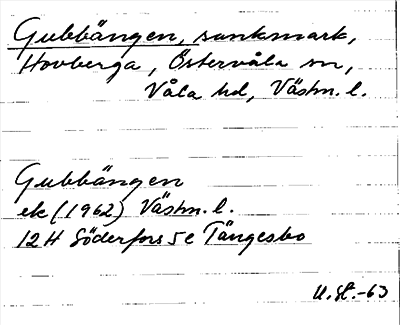 Gubbängen, sankmark,
Hovberga, Östervåla sn,
Våla hd, Västm. l.
Gubbängen
ek (1962) Västm. l.
12 H Söderfors 5 e Tängesbo
U. St. -63